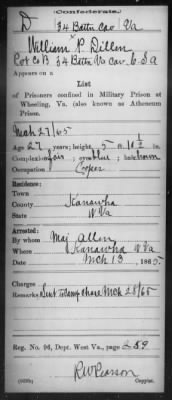 Confederate.
D 34 Battn Cav Va
William P. Dillen
Co B 34 Battn Va Cav. C.S.A
Appears on a
List
of Prisoners confined in Military Prison at
Wheeling, Va. (also known as Atheneum
Prison.
Mch 27/65
Age 27 years; height, 5 ft. 10 1/2 in.
Complexion, fair; eyes, blue; hair, brown
Occupation Cooper
Residence:
Town
County Kanawha
State W Va
Arrested:
By whom Maj Allen
Where Kanawha W Va
When Mch 13, 1865.
Charges
Remarks: Sent to Camp Chase Mch 28/65
Reg. No. 96, Dept. West Va., page 259
R W Pearson
Copyist.